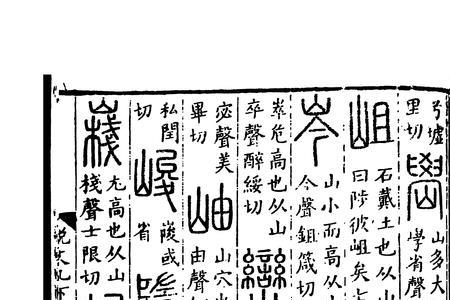 兮墟
里切
嶨
山多大
學省聲
岨
石戴土也从山
曰陟彼岨矣
岑
山小而高从
今聲鉏箴切
崒危高也从山
卒聲醉綏切
巒
宓聲美
畢切
岫
山穴
由聲
私閏
切
峻
㟬或
省
嶘
尤高也从山
棧聲士限切
說文九下